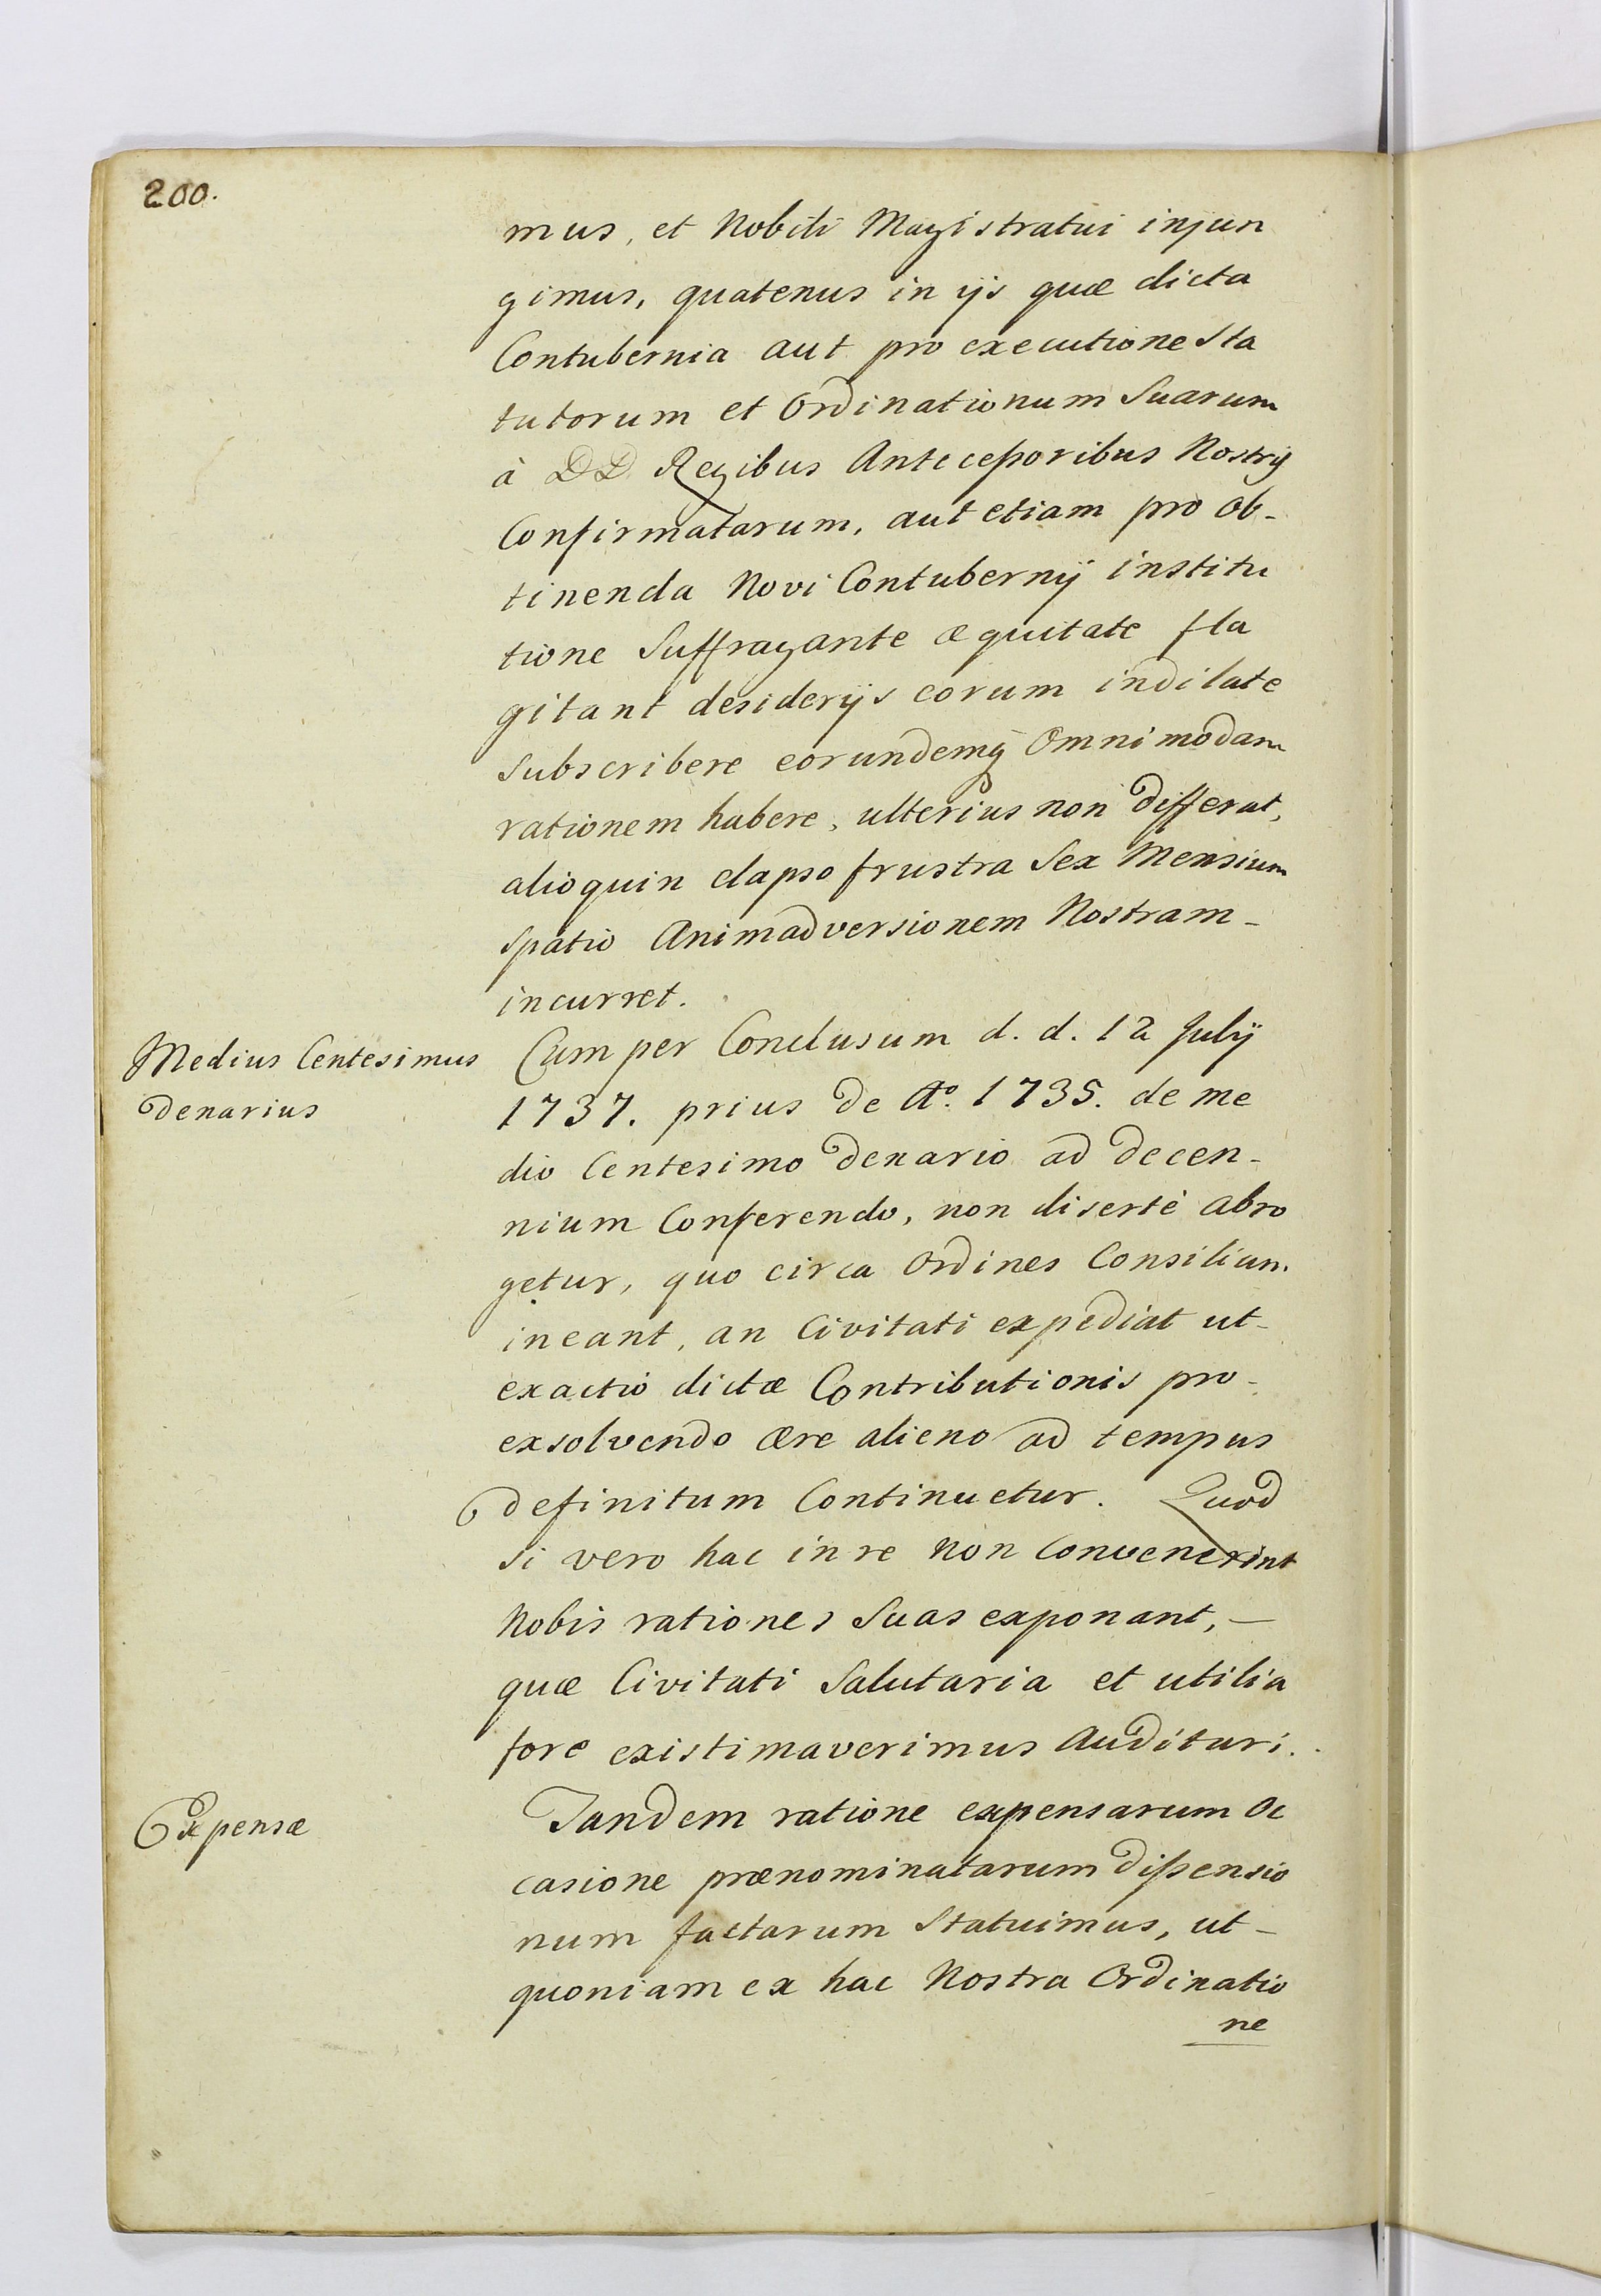 200.
mus, et Nobili Magistratui injun
gimus, quatenus in ijs quæ dicta
Contubernia aut pro executione Sta
tutorum et Ordinationum Suarum
à DD Regibus Antecessoribus Nostris
Confirmatarum, aut etiam pro ob-
tinenda Novi Contubernij institu
tione Suffragante æquitate fla
gitant desiderijs eorum indilate
subscribere eorundemq Omnimodam
rationem habere, ulterius non differat,
alioquin elapso frustra Sex Mensium
spatio Animadversionem Nostram-
incurret.
Medius Centesimus
denarius
Cum per Conclusum d. d. 12 Julij
1737. prius de Aº. 1735. de me
dio Centesimo denario ad decen-
nium Conferendo, non disertè abro
getur, quo circa Ordines Consilium
ineant, an Civitati expediat ut-
exactio dictæ Contributionis pro-
exsolvendo ære alieno ad tempus
definitum Continuetur. Quod
si vero hac in re non convenerint
Nobis rationes Suas exponant,-
quæ Civitati Salutaria et utilia
fore existimaverimus Audituri.
Expensæ
Tandem ratione expensarum Oc
casione prænominatarum dissensio
num factarum Statuimus, ut-
quoniam ex hac Nostra Ordinatio
ne